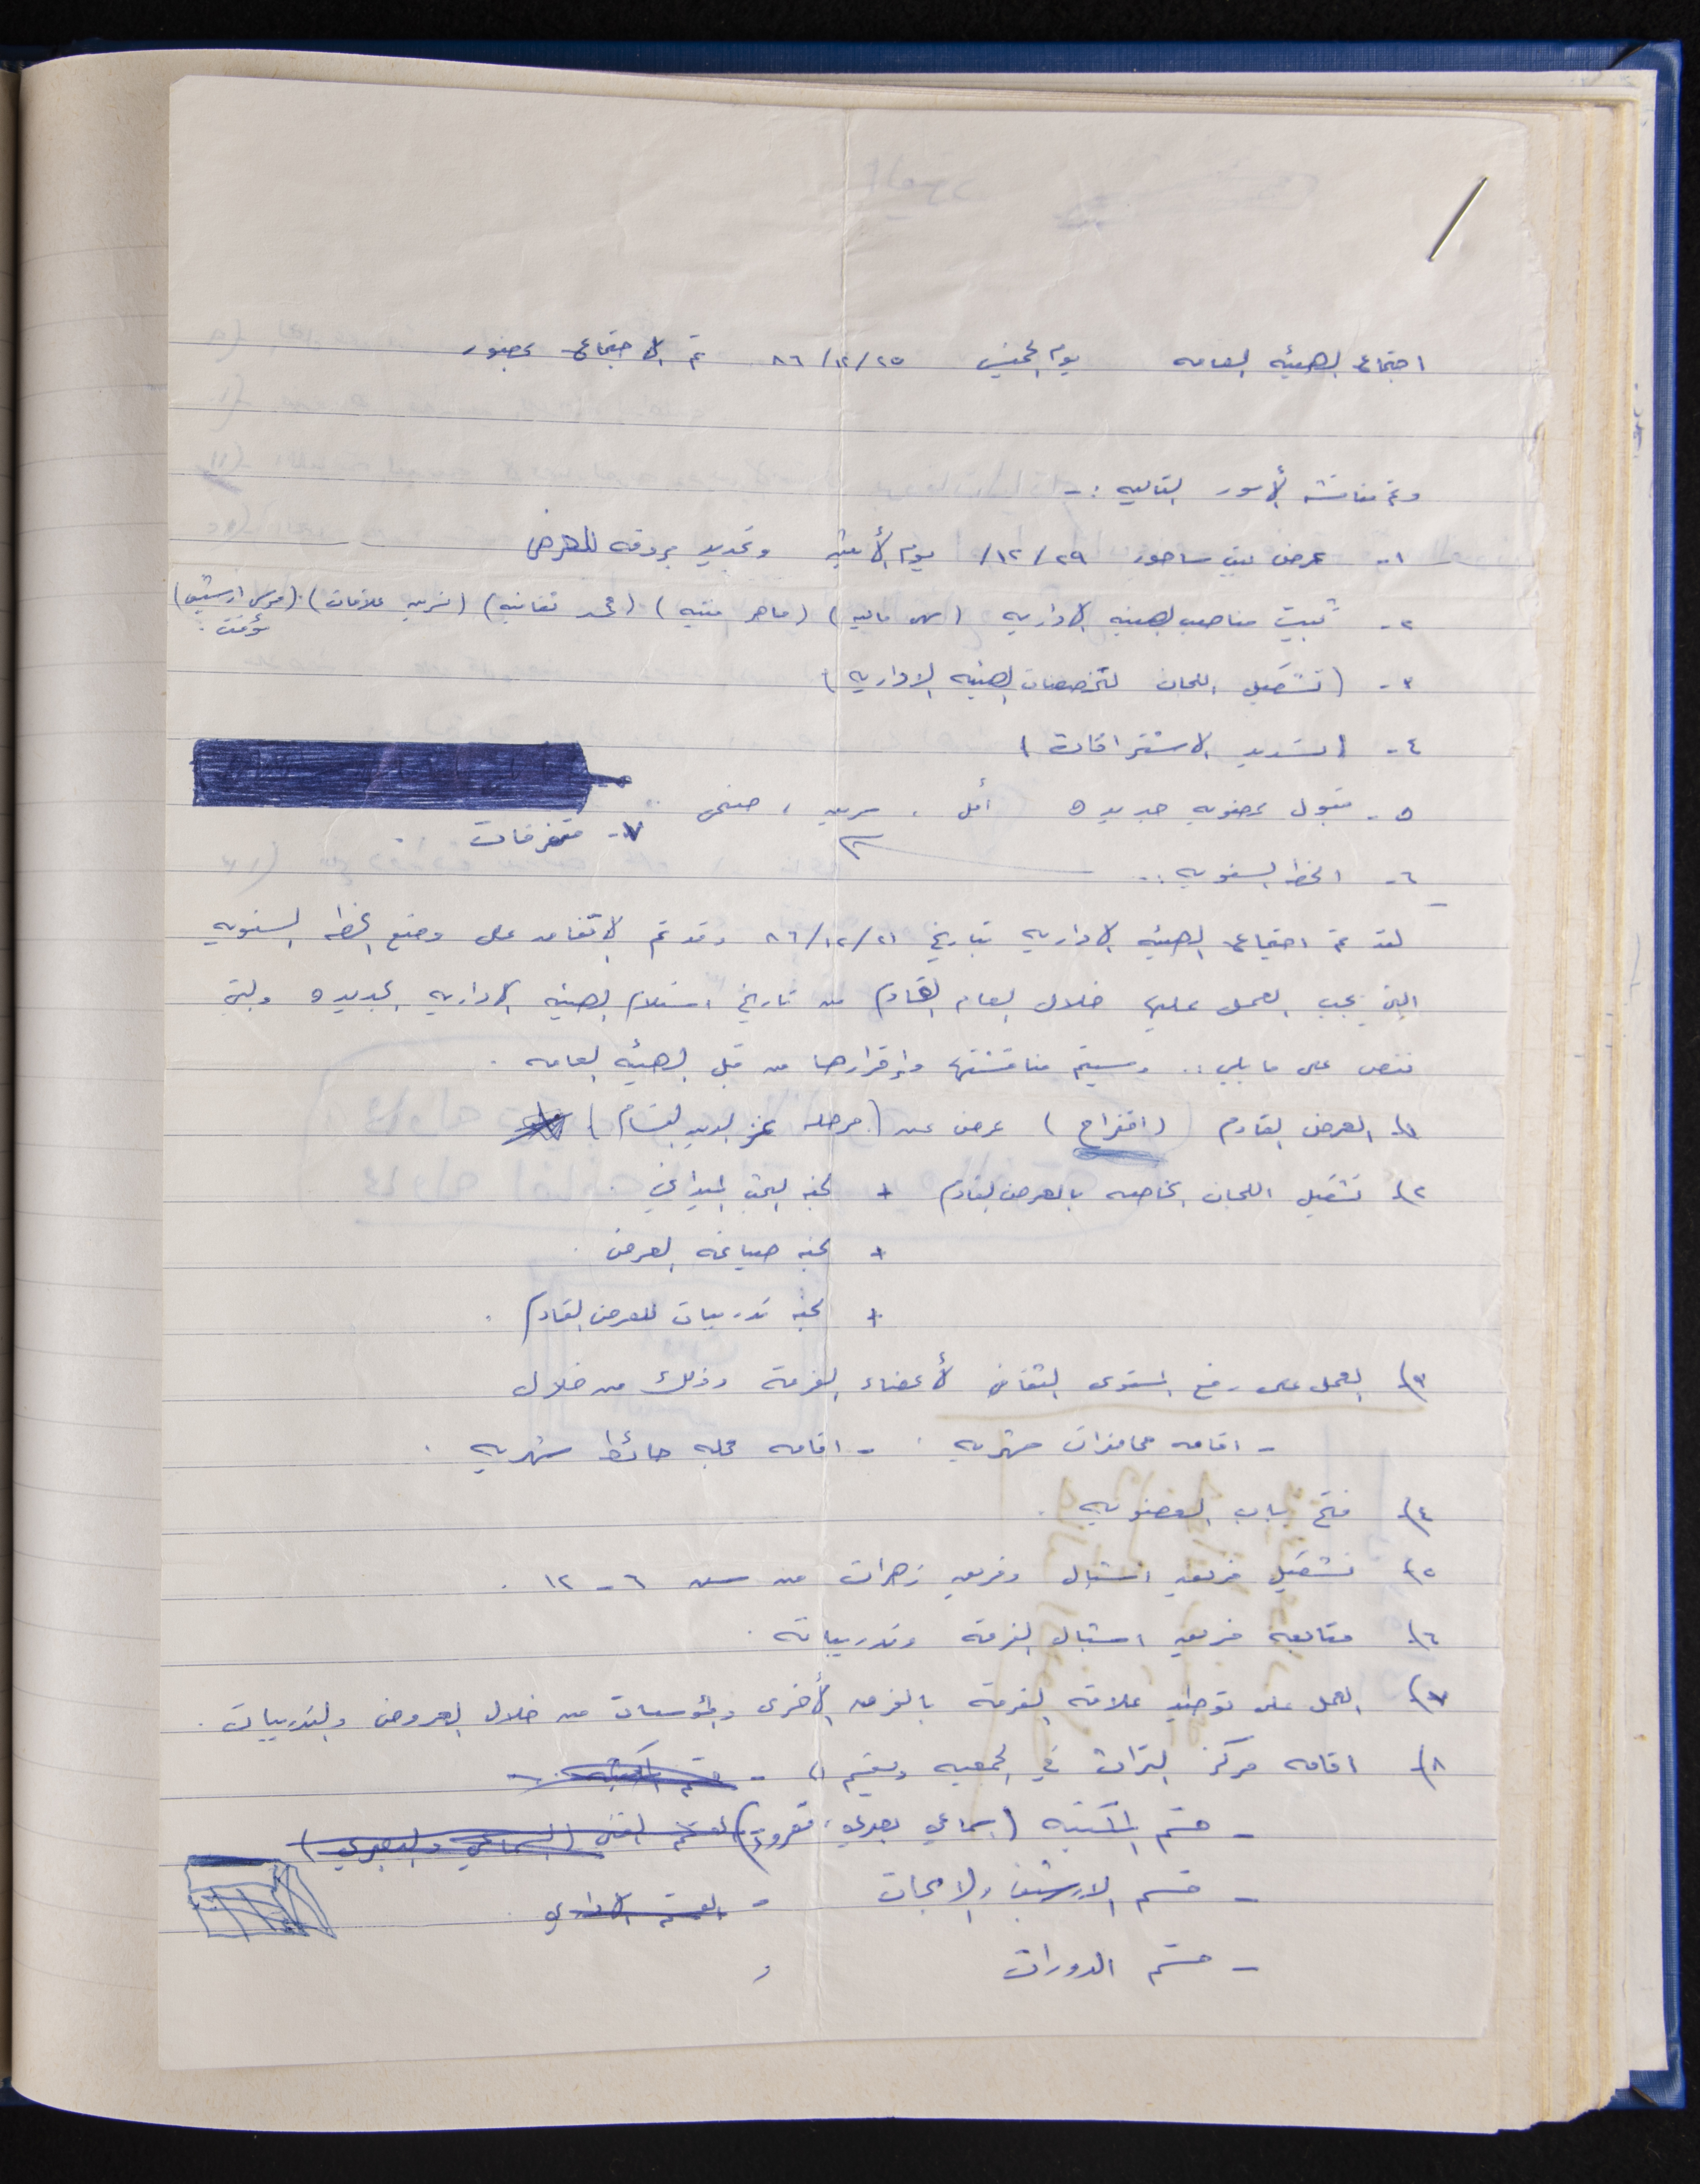 اجتماع الهيئه العامه يوم الخميس ٢٥/١٢/٨٦ تم الاجتماع بحضور
وتم مناقشة الأمور التاليه :-
١- عرض بيت ساحور ٢٩/١٢/ يوم الأثنين وتحديد بروفه للعرض
٢- تثبيت مناصب الهيئه الاداريه (سهى ماليه) (ماهر فنيه) (محمد ثقافيه) (نسرين علاقات). (موسى ارشيف)
مؤقت.
٣- (تشكيل اللجان لتخصصات الهيئه الاداريه)
٤- (تسديد الاشتراكات)
٥- قبول عضويه جديده أمل ، سرين ، ضحى ..
٧- متفرقات ..
٦- الخطه السنويه :..
لقد تم اجتماع الهيئه الاداريه بتاريخ ٢١/١٢/٨٦ وقد تم الاتفاق على وضع الخطه السنويه
التي يجب العمل عليها خلال العام القادم من تاريخ استلام الهيئه الاداريه الجديده والتي
تنص على ما يلي :. وسيتم مناقشتها وإقرارها من قبل الهيئه العامه .
١). العرض القادم (اقتراح) عرض عن (مرحله عز الدين القسام)
٢). تشكيل اللجان الخاصه بالعرض القادم + لجنه البحث الميداني .
+ لجنه صياغه العرض .
+ لجنه تدريبات للعرض القادم .
٣). العمل على رفع المستوى الثقافي لأعضاء الفرقة وذلك من خلال
- اقامه محاضرات شهريه . - اقامه مجله حائط شهريه .
٤). فتح باب العضويه .
٥). تشكيل فريق اشبال وفريق زهرات من سن ٦ - ١٢ .
٦). متابعه فريق اشبال الفرقة وتدريباته .
٧). العمل على توطيد علاقة الفرقة بالفرق الأخرى والمؤسسات من خلال العروض والتدريبات .
٨). اقامه مركز التراث في الجمعيه ويضم ١) - قسم المكتبه
- قسم المكتبه (سماعي بصري، مقروء) القسم الفني (السماعي والبصري)
- قسم الارشيف والابحاث - القسم الاداري
- قسم الدورات و